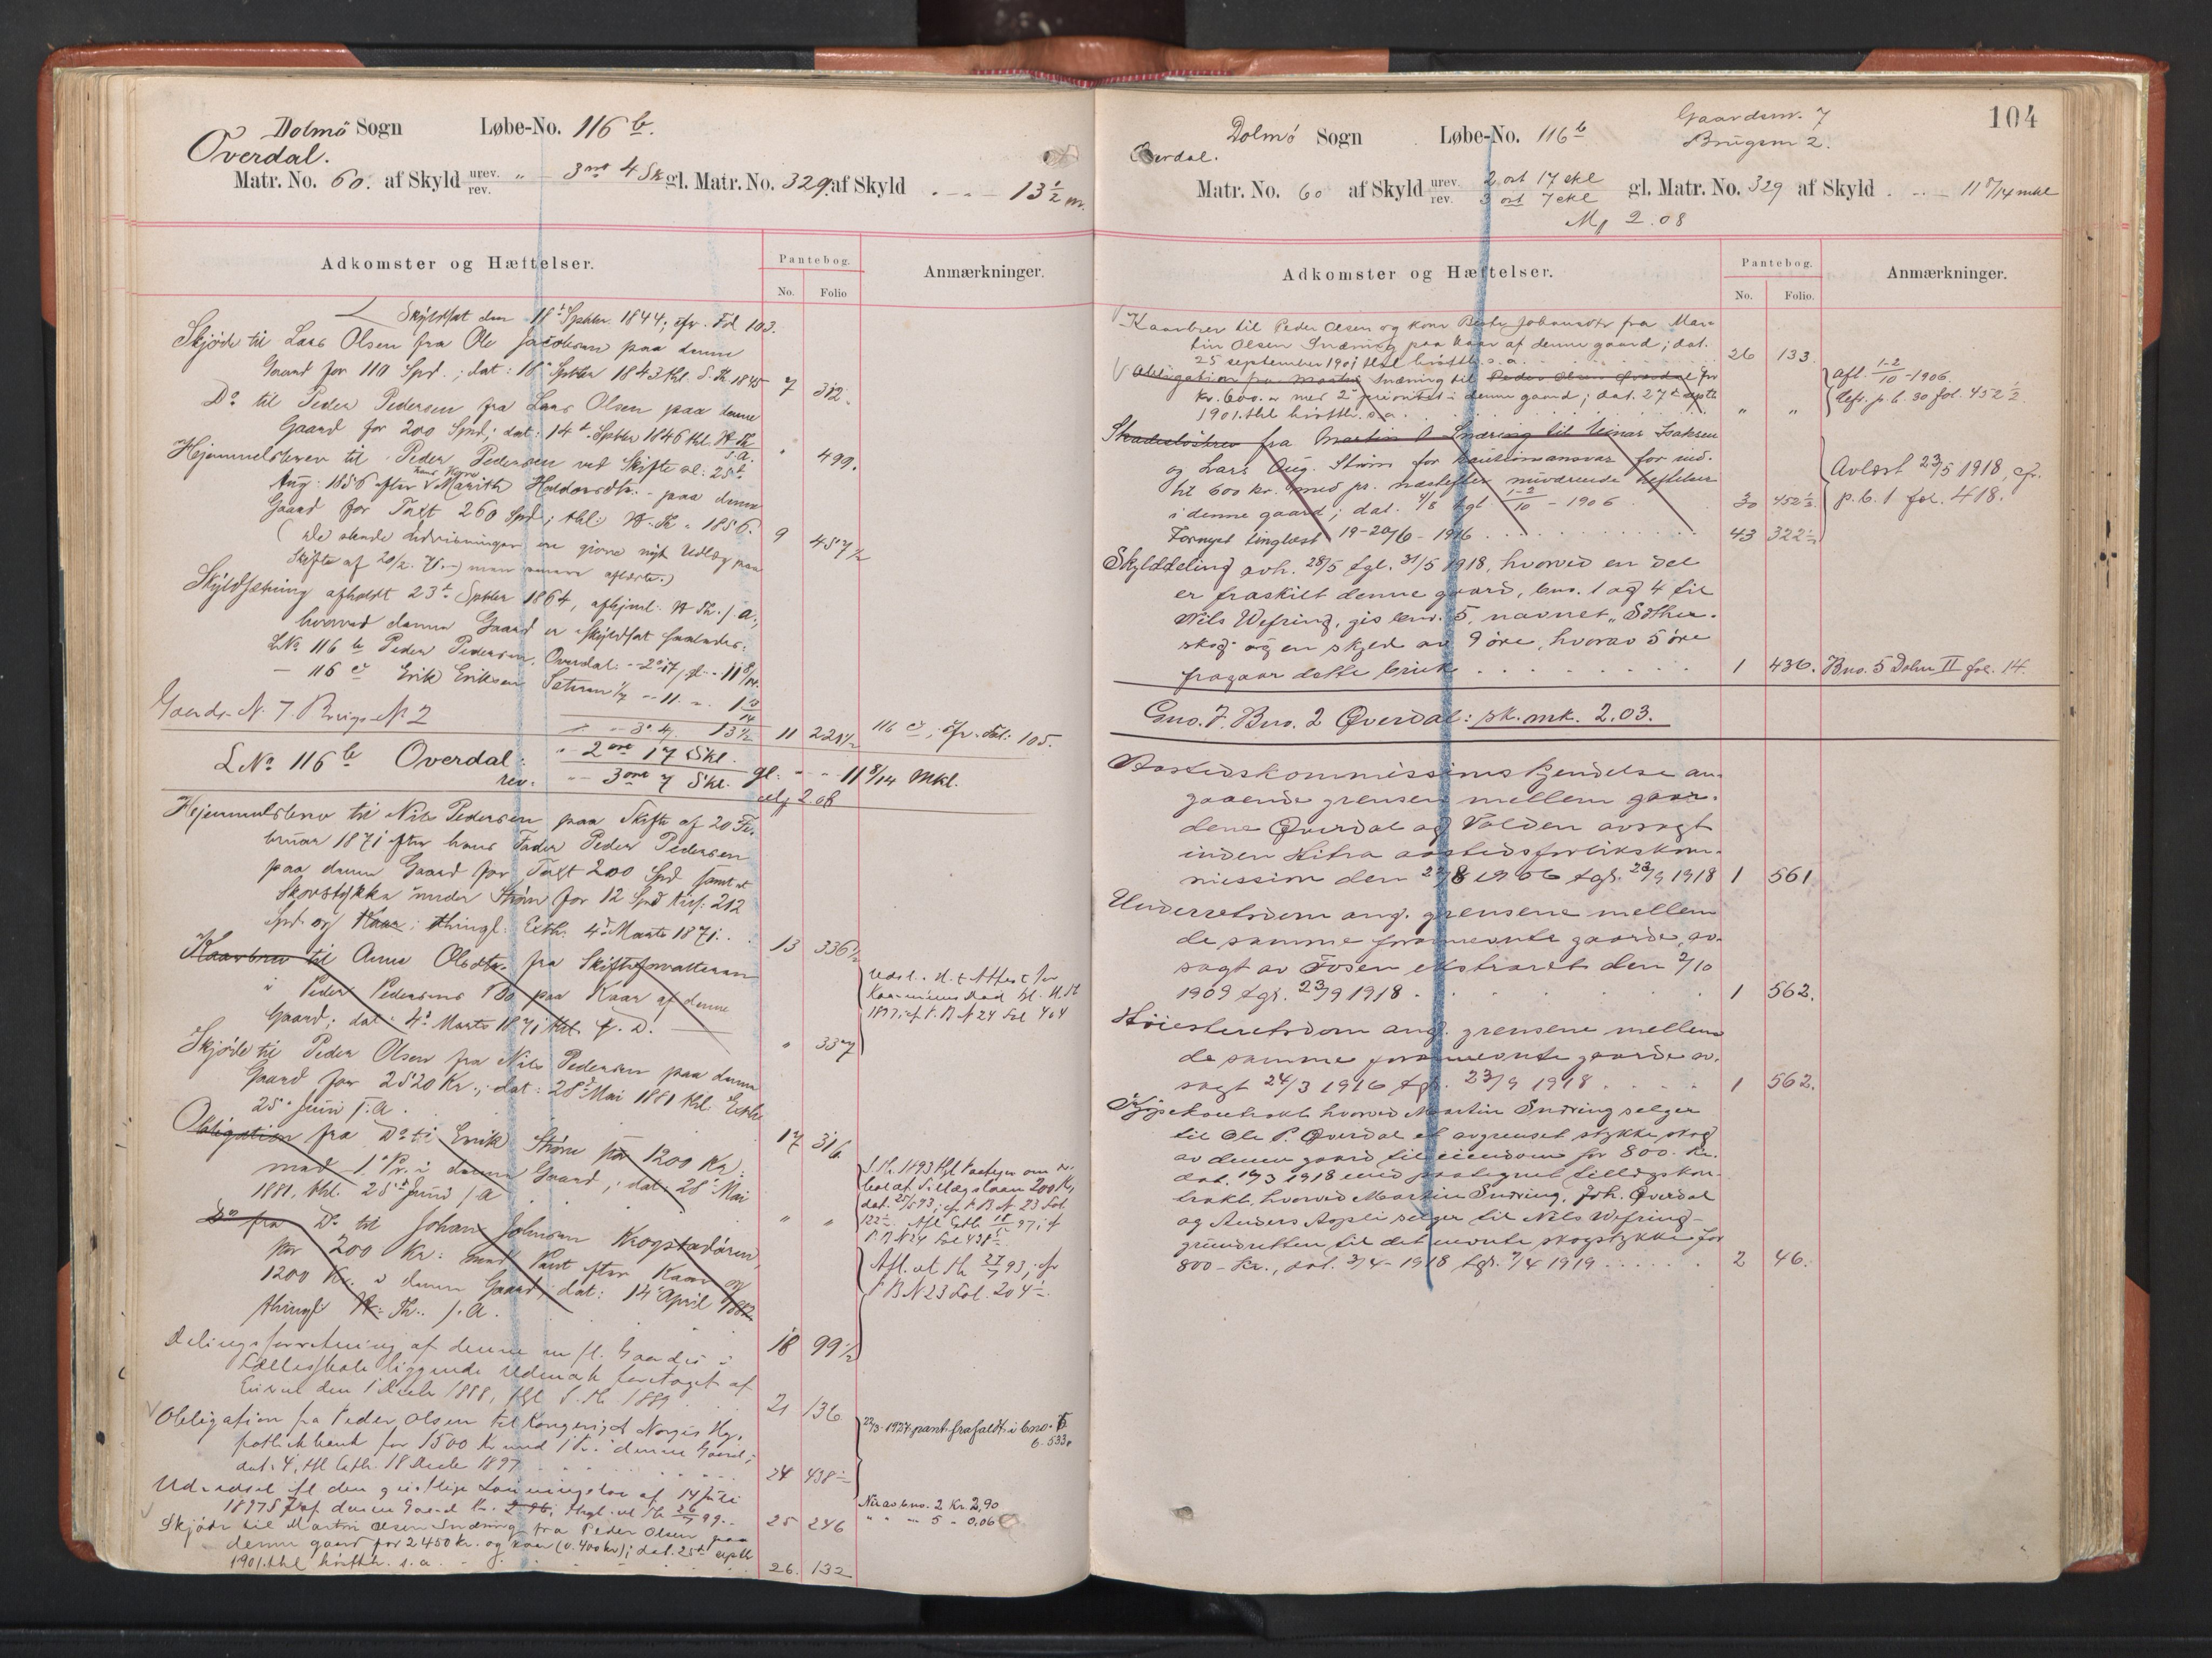 Dolmö Sogn Løbe-No. 116 b.
Overdal.
Matr. No. 60. af Skyld urev. rev. " – 3 ort 4 Sk gl. Matr. No. 329 af Skyld . – – 13 1/2 m.
Adkomster og Hæftelser.
Pantebog.
No. Folio
Anmærkninger.
Skyldsat den 18de Septbr. 1844; cfr. Fol 103.
Skjøde til Lars Olsen fra Ole Jacobsen paa denne
Gaard for 110 Spd.; dat: 18 Septbr 1843 thl. S. Th. 1845 7 312.
Do til Peder Pedersen fra Lars Olsen paa denne
Gaard for 200 Spd; dat: 14de Septbr 1846 thl. H. Th. s.a. " 499.
Hjemmelsbrev til Peder Pedersen ved Skifte sl: 25de
Aug: 1856 efter hans Kone Marith Haldorsdtr. – paa denne
Gaard for Taxt 260 Spd; thl: H. Th. 1856. 9 457 1/2
Skifte af 20/2. 71.–) men senere aflæste.)
Skyldsætning afholdt 23de Septbr 1864, afhjml. H Th. s. a.,
hvorved denne Gaard er skyldsat saaledes:
LNo 116 b Peder Pedersen, Overdal: – 2 " 17, gl. – 11 8/14.
– 116 c Erik Eriksen Sæteren – " 11. ". 1 13/14
Gaards-N. 7. Brugs-No 2 " – 3 " 4. 13 1/2 11 221 1/2 116 c, cfr. Fol: 105.
LNo 116 b Overdal: " 2 ort 17 Skl.
rev. – " 3 ort 7 Skl. gl: – " – 11 8/14 Mkl.
Mk 2.08
Hjemmelsbrev til Nils Pedersen paa Skifte af 20 Fe-
bruar 1871 efter hans Fader Peder Pedersen
paa denne Gaard for Taxt 200 Spd samt et
Skovstykke under Strøm for 12 Spd tils: 212
Spd. og Kaar; thingl: Exth: 4de Marts 1871. . 13 336 1/2
Kaarbrev til Anne Olsdtr. fra Skifteforvalteren
i Peder Pedersens Bo paa Kaar af denne
Gaard; dat: 4de Marts 1871 thl. s. D. " 337
Udsl. i H. t. Attest fra
1897, cf. P. B. N 24 Fol 404
Skjøde til Peder Olsen fra Nils Pedersen paa denne
Gaard for 2520 Kr.; dat: 28de Mai 1881 thl. Exth
25 Juni s. a. 17 316
Obligation fra Do til Erik Strøm for 1200 Kr:
med 1. Pr. i denne Gaard; dat: 28de Mai
1881. thl. 25de Juni s. a " "
dat. 25/5 93; cf P. B. N 23 Fol
P. B. N 24 Fol 438 1/2
Do fra Do til Johan Johnsen Krogstadøren,
for 200 Kr: med Pant efter Kaar og
1200 Kr. i denne Gaard; dat: 14 April 1882
thingl H. Th. s. A. 18 99 1/2
Afl. vl. Th 27/7 93, cfr
P B N 23 Fol. 204 1/2.
Delingsforretning af denne m. fl. Gaardes i
Fællesskab liggende Udmark foretaget af
den 1 Decbr 1888, thgl S. Th 1889 21 136
Obligation fra Peder Olsen til Kongeriget Norges Hy-
pothekbank for 1500 Kr med 1 Pr. i denne Gaard;
dat. 4, thl Exth. 18 Decbr 1897 24 438 1/2
22/3. 1937 pant. frafaldt i bno. 5
6. 533.
Udredsel til den geistlige Lønningslov af 14 Juli
1897 § 7 af denne Gaard Kr. 2.96, thgl. vl Th 26/7 99. 25 246
Nu av bno. 2 Kr. 2,90
" " – 5 " 0,06
Skjøde til Martin Olsen Snøring fra Peder Olsen paa
denne gaard for 2450 kr. og kaar (v. 400 kr); dat. 25de septbr
1901. thl høstth. s. a. 26. 132
104
Gaardsnr. 7
Brugsnr 2.
Dolmö Sogn Løbe-No. 116 b
Overdal.
Matr. No. 60 af Skyld urev. rev. 2 ort 17 skl 3 ort 7 skl gl. Matr. No. 329 af Skyld . – 11 8/14 mkl
Mk 2.08
Adkomster og Hæftelser.
Pantebog.
No. Folio.
Anmærkninger.
Kaarbrev til Peder Olsen og kone Berte Johansdtr fra Mar-
tin Olsen Snøring paa kaar af denne gaard; dat.
25 september 1901 thl høstth. s. a. 26 133.
Obligation fra Martin Snøring til Peder Olsen Overdal for
kr. 600.oo med 2den prioritet i denne gaard; dat. 27de septbr
1901. thl høstth. s. a. " "
Afl. 1-2/10 – 1906.
Cfr. p. b. 30 fol. 452 1/2.
Skadesløsbrev fra Martin O. Snøring til Einar Isaksen
og Lars Aug. Strøm for kautionsansvar for ind-
til 600 kr. med pr. næstefter nuværende heftelser
i denne gaard; dat. 4/8 tgl. 1-2/10 – 1906 30 452 1/2
Fornyet tinglæst 19-20/6 – 1916 43 322 1/2
Avlæst 23/5 1918, cfr.
p. b. 1 fol. 418.
Skylddeling avh. 28/5 tgl. 31/5 1918, hvorved en del
er fraskilt denne gaard, bno. 1 og 4 til
Nils Wefring, gis bnr. 5, navnet „Sæther-
skog" og en skyld av 9 øre, hvorav 5 øre
fragaar dette bruk 1 436. Bno. 5 Dolm II fol. 14.
Gno. 7. Bno. 2 Overdal: sk. mk. 2.03.
Aastedskommissions kjendelse an-
gaaende grensen mellem gaar-
dene Overdal og Volden avsagt
inden Hitra aastedsforlikskom-
mission den 22/8 1906 tgl. 23/9 1918 1 561
Underretsdom ang. grensene mellem
de samme forannevnte gaarde, av-
sagt av Fosen ekstraret den 2/10
1909 tgl. 23/9 1918. 1 562.
Høiesteretsdom ang. grensene mellem
de samme forannevnte gaarde av-
sagt 24/3 1916 tgl. 23/9 1918. 1 562.
Kjøpekontrakt hvorved Martin Snøring selger
til Ole P. Overdal et avgrenset stykke skog
av denne gaard til eiendom for 800.- kr.
dat. 19/3 1918 med paategnet tillægskon-
trakt hvorved Martin Snøring, Joh. Overdal
og Anders Aspli selger til Nils Wefring
grundretten til det nevnte skogstykke for
800 – kr., dat. 3/4 – 1918 tgl. 7/4 1919 2 46.